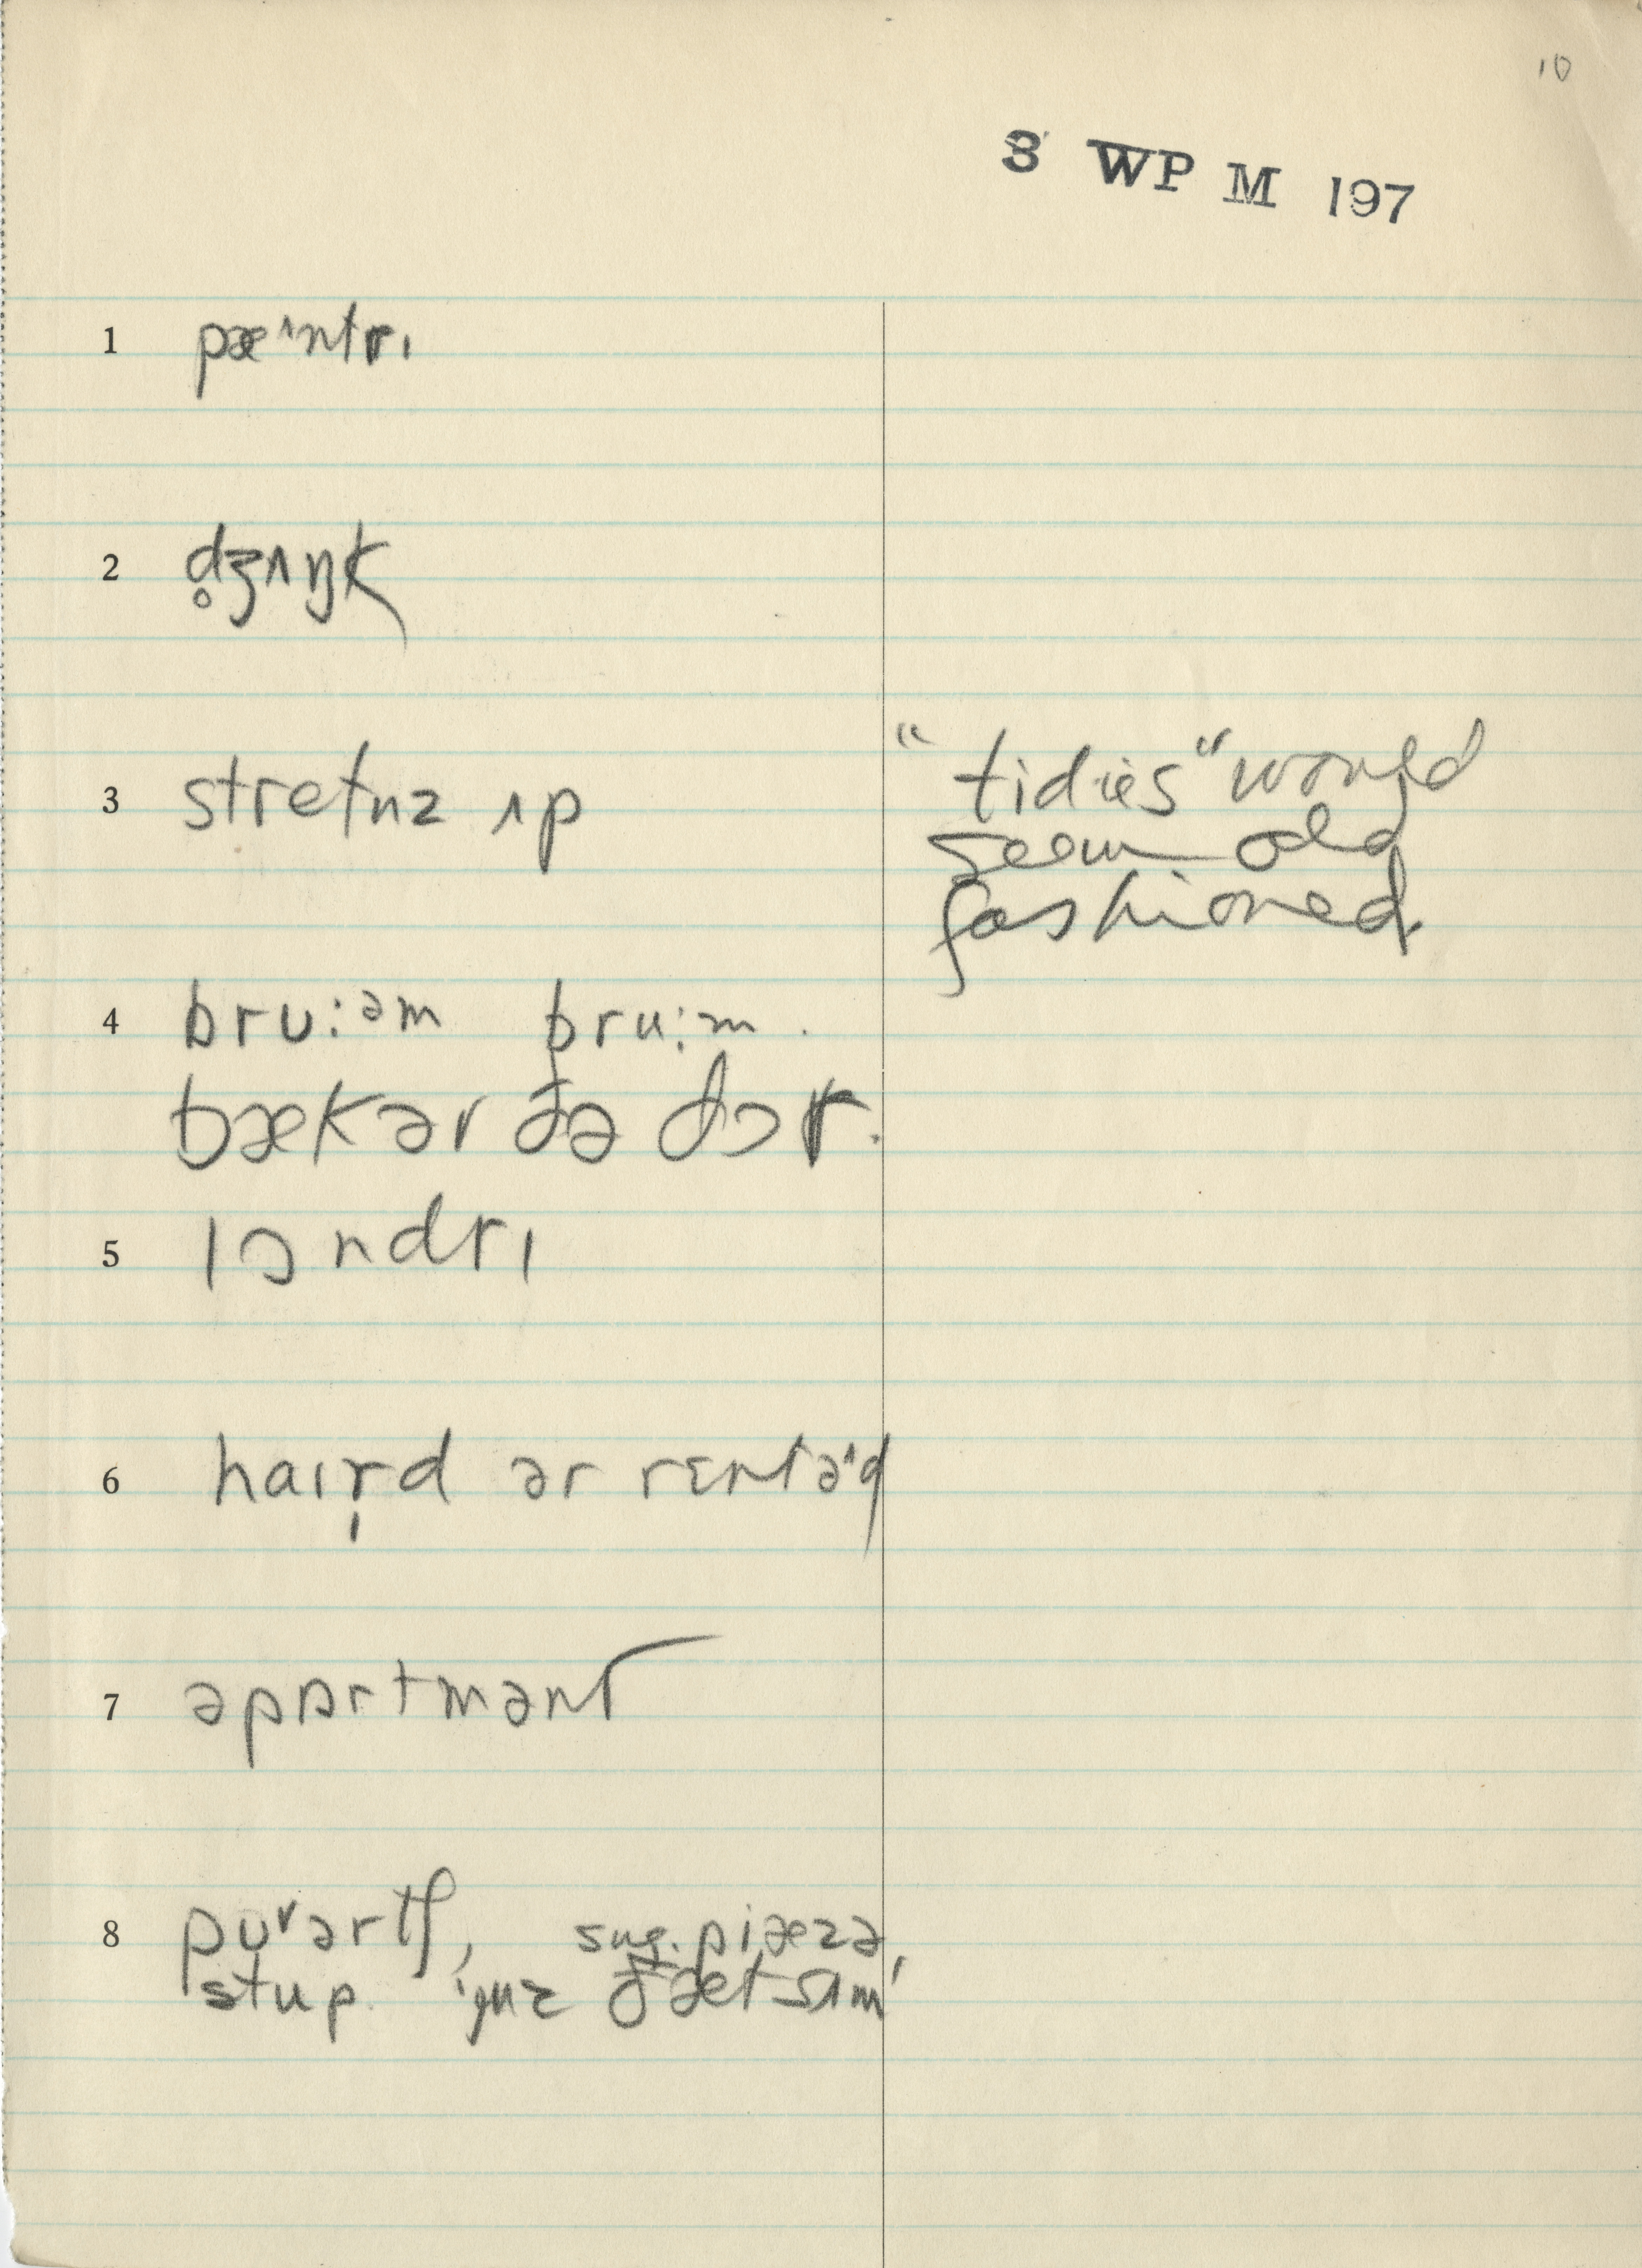 10
3 WP M 197
1 pæ^ntrɪ
2 d̥ʒʌŋk
3 stretnz ʌp
"tidies" would
seem old
fashioned
4 bru:əm bru:m.
bækər ðə dɔr.
5 lɔndrɪ
6 haɪr̩d ər rɛntəd
7 əpɑrtmənt
8 pʊ˅ərtʃ, sug. piæzə,
stup. ɪuz ðæt sʌm